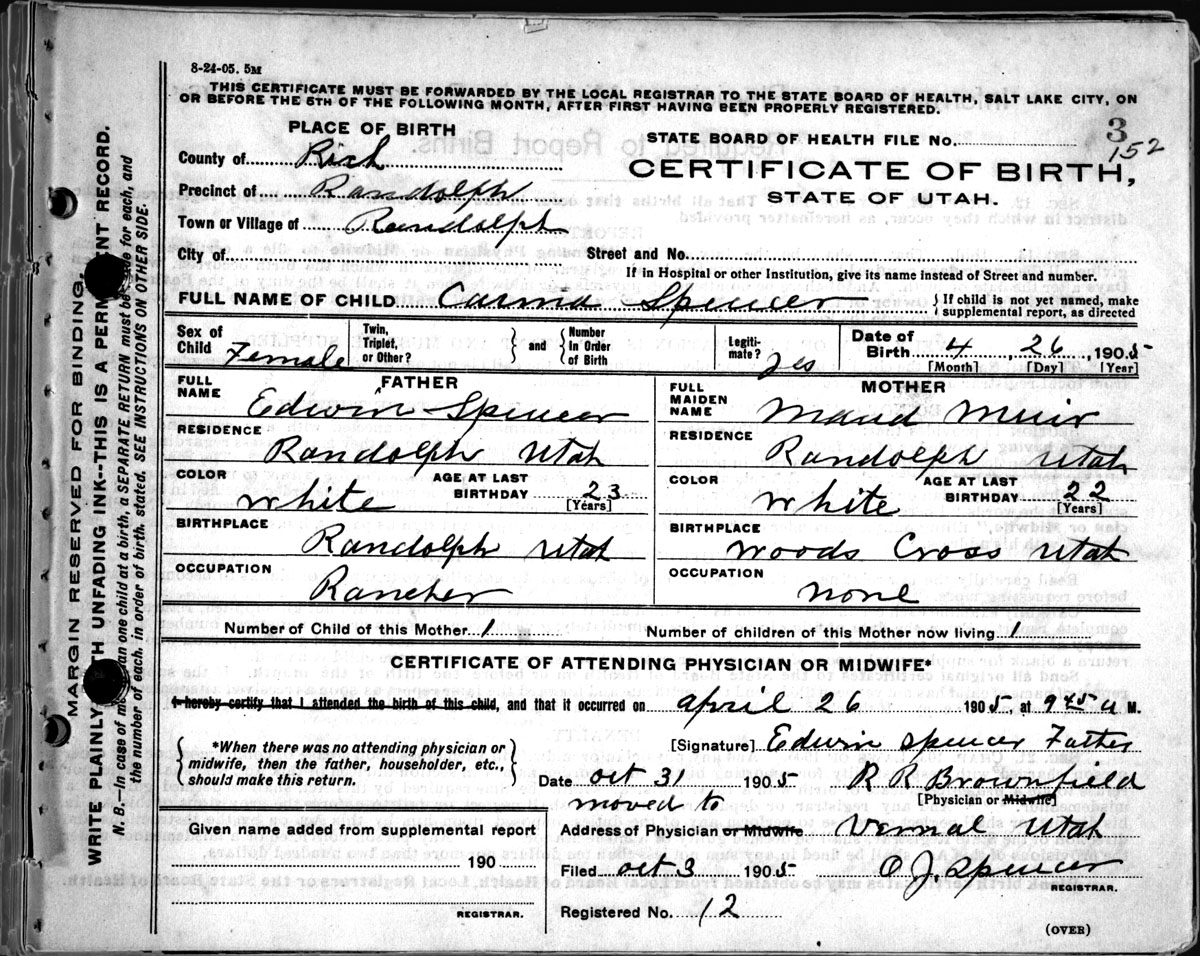 8-24-05. 5M
THIS CERTIFICATE MUST BE FORWARDED BY THE LOCAL REGISTRAR TO THE STATE BOARD OF HEALTH, SALT LAKE CITY, ON
OR BEFORE THE 5TH OF THE FOLLOWING MONTH, AFTER FIRST HAVING BEEN PROPERLY REGISTERED.
PLACE OF BIRTH
County of Rich
Precinct of Randolph
Town or Village of Randolph
STATE BOARD OF HEALTH FILE No. 3
152
CERTIFICATE OF BIRTH,
STATE OF UTAH.
City of Street and No.
If in Hospital or other Institution, give its name instead of Street and number.
FULL NAME OF CHILD Carma Spencer } If child is not yet named, make
supplemental report, as directed
Sex of Child Female Twin, Triplet, or Other? } and { Number In Order of Birth Legiti-mate? yes Date of Birth 4 26, 1905
[Month] [Day] [Year]
FATHER
FULL NAME Edwin Spencer
RESIDENCE Randolph Utah
COLOR white AGE AT LAST BIRTHDAY 23
[Years]
BIRTHPLACE Randolph Utah
OCCUPATION Rancher
MOTHER
FULL MAIDEN NAME Maud Muir
RESIDENCE Randolph Utah
COLOR white AGE AT LAST BIRTHDAY 22
[Years]
BIRTHPLACE Woods Cross Utah
OCCUPATION none
Number of Child of this Mother 1 Number of children of this Mother now living 1
CERTIFICATE OF ATTENDING PHYSICIAN OR MIDWIFE*
I hereby certify that I attended the birth of this child, and that it occurred on April 26 1905, at 9 45 a M.
{ *When there was no attending physician or
midwife, then the father, householder, etc.,
should make this return. }
[Signature] Edwin Spencer Father
Date Oct 31 1905 R R Brownfield
[Physician or Midwife]
moved to
Address of Physician or Midwife Vernal Utah
Given name added from supplemental report
190
REGISTRAR.
Filed Oct 3 1905 O J. Spencer
REGISTRAR.
Registered No. 12
(OVER)
MARGIN RESERVED FOR BINDING.
WRITE PLAINLY WITH UNFADING INK--THIS IS A PERMANENT RECORD.
N. B.—In case of more than one child at a birth, a SEPARATE RETURN must be made for each, and
the number of each, in order of birth, stated. SEE INSTRUCTIONS ON OTHER SIDE.